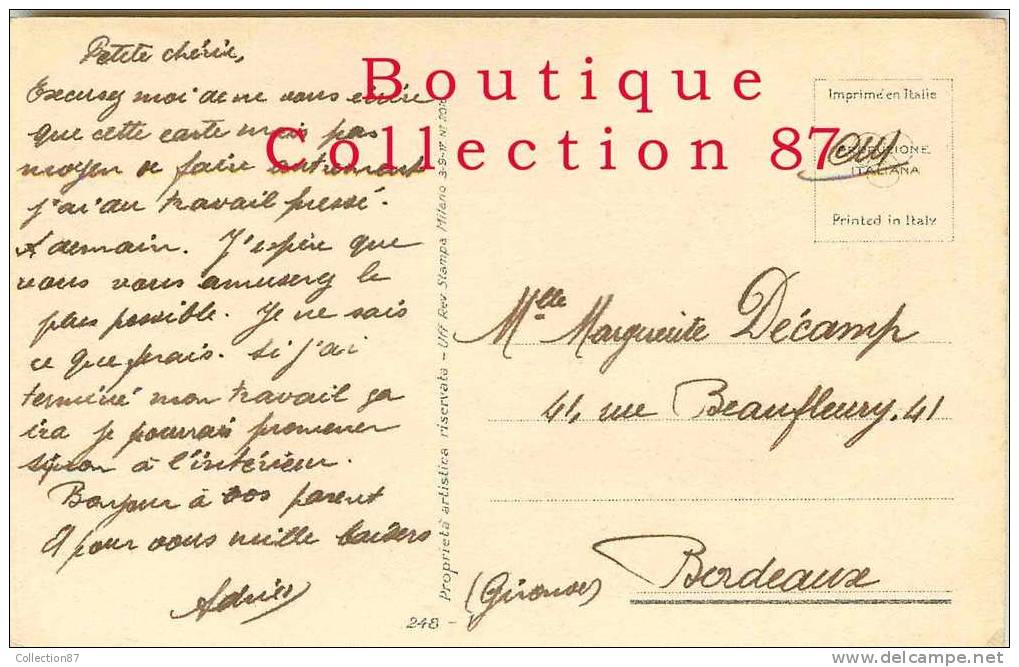 Petite chérie,
Excusez moi de ne vous écrire
que cette carte mais pas
moyen de faire autrement
j'ai du travail pressé.
A demain. J'espère que
vous vous amuserez le
plus possible. Je ne sais
ce que ferais. Si j'ai
terminé mon travail ça
ira je pourrais promener
sinon à l'intérieur.
Bonjour à vos parent
A pour vous mille baisers
Boutique
Collection 87
Proprietà artistica riservata - Uff Rev. Stampa Milano 3-9-17 Nº
248 -
Imprimé en Italie
PRODUZIONE
ITALIANA
Printed in Italy
Mlle Marguerite Décamp
41, rue Beaufleury, 41
Bordeaux
(Gironde)
Collection87
delcampe.net